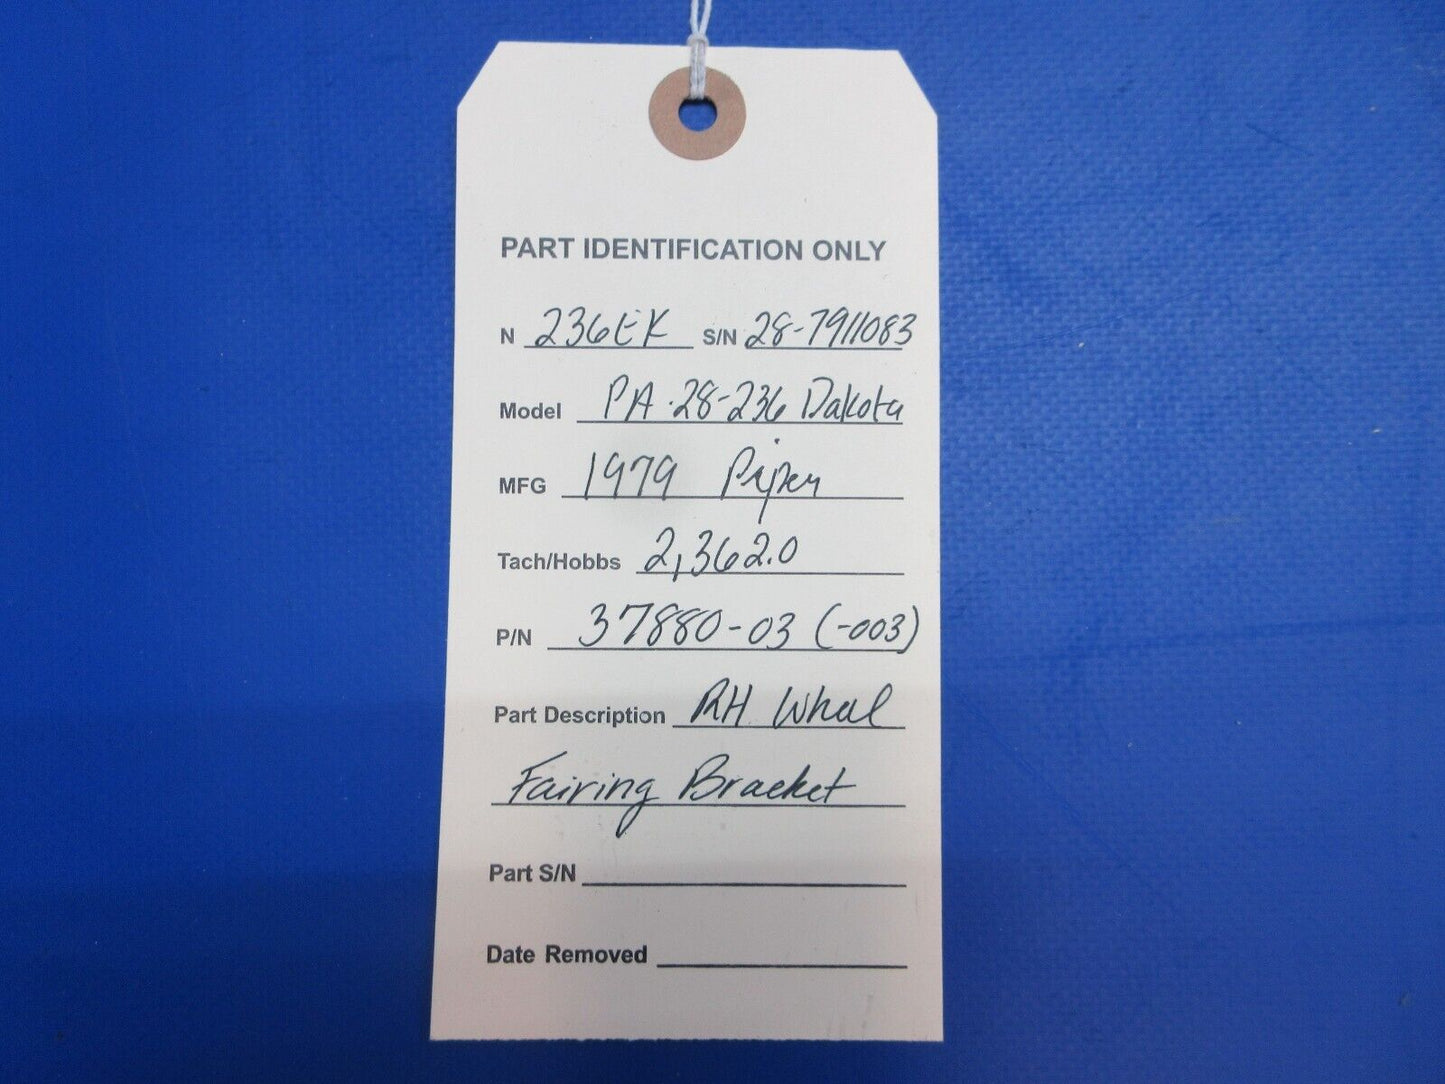 PART IDENTIFICATION ONLY
N 236EK S/N 28-7911083
Model PA-28-236 Dakota
MFG 1979 Piper
Tach/Hobbs 2,362.0
P/N 37880-03 (-003)
Part Description RH Wheel
Fairing Bracket
Part S/N
Date Removed